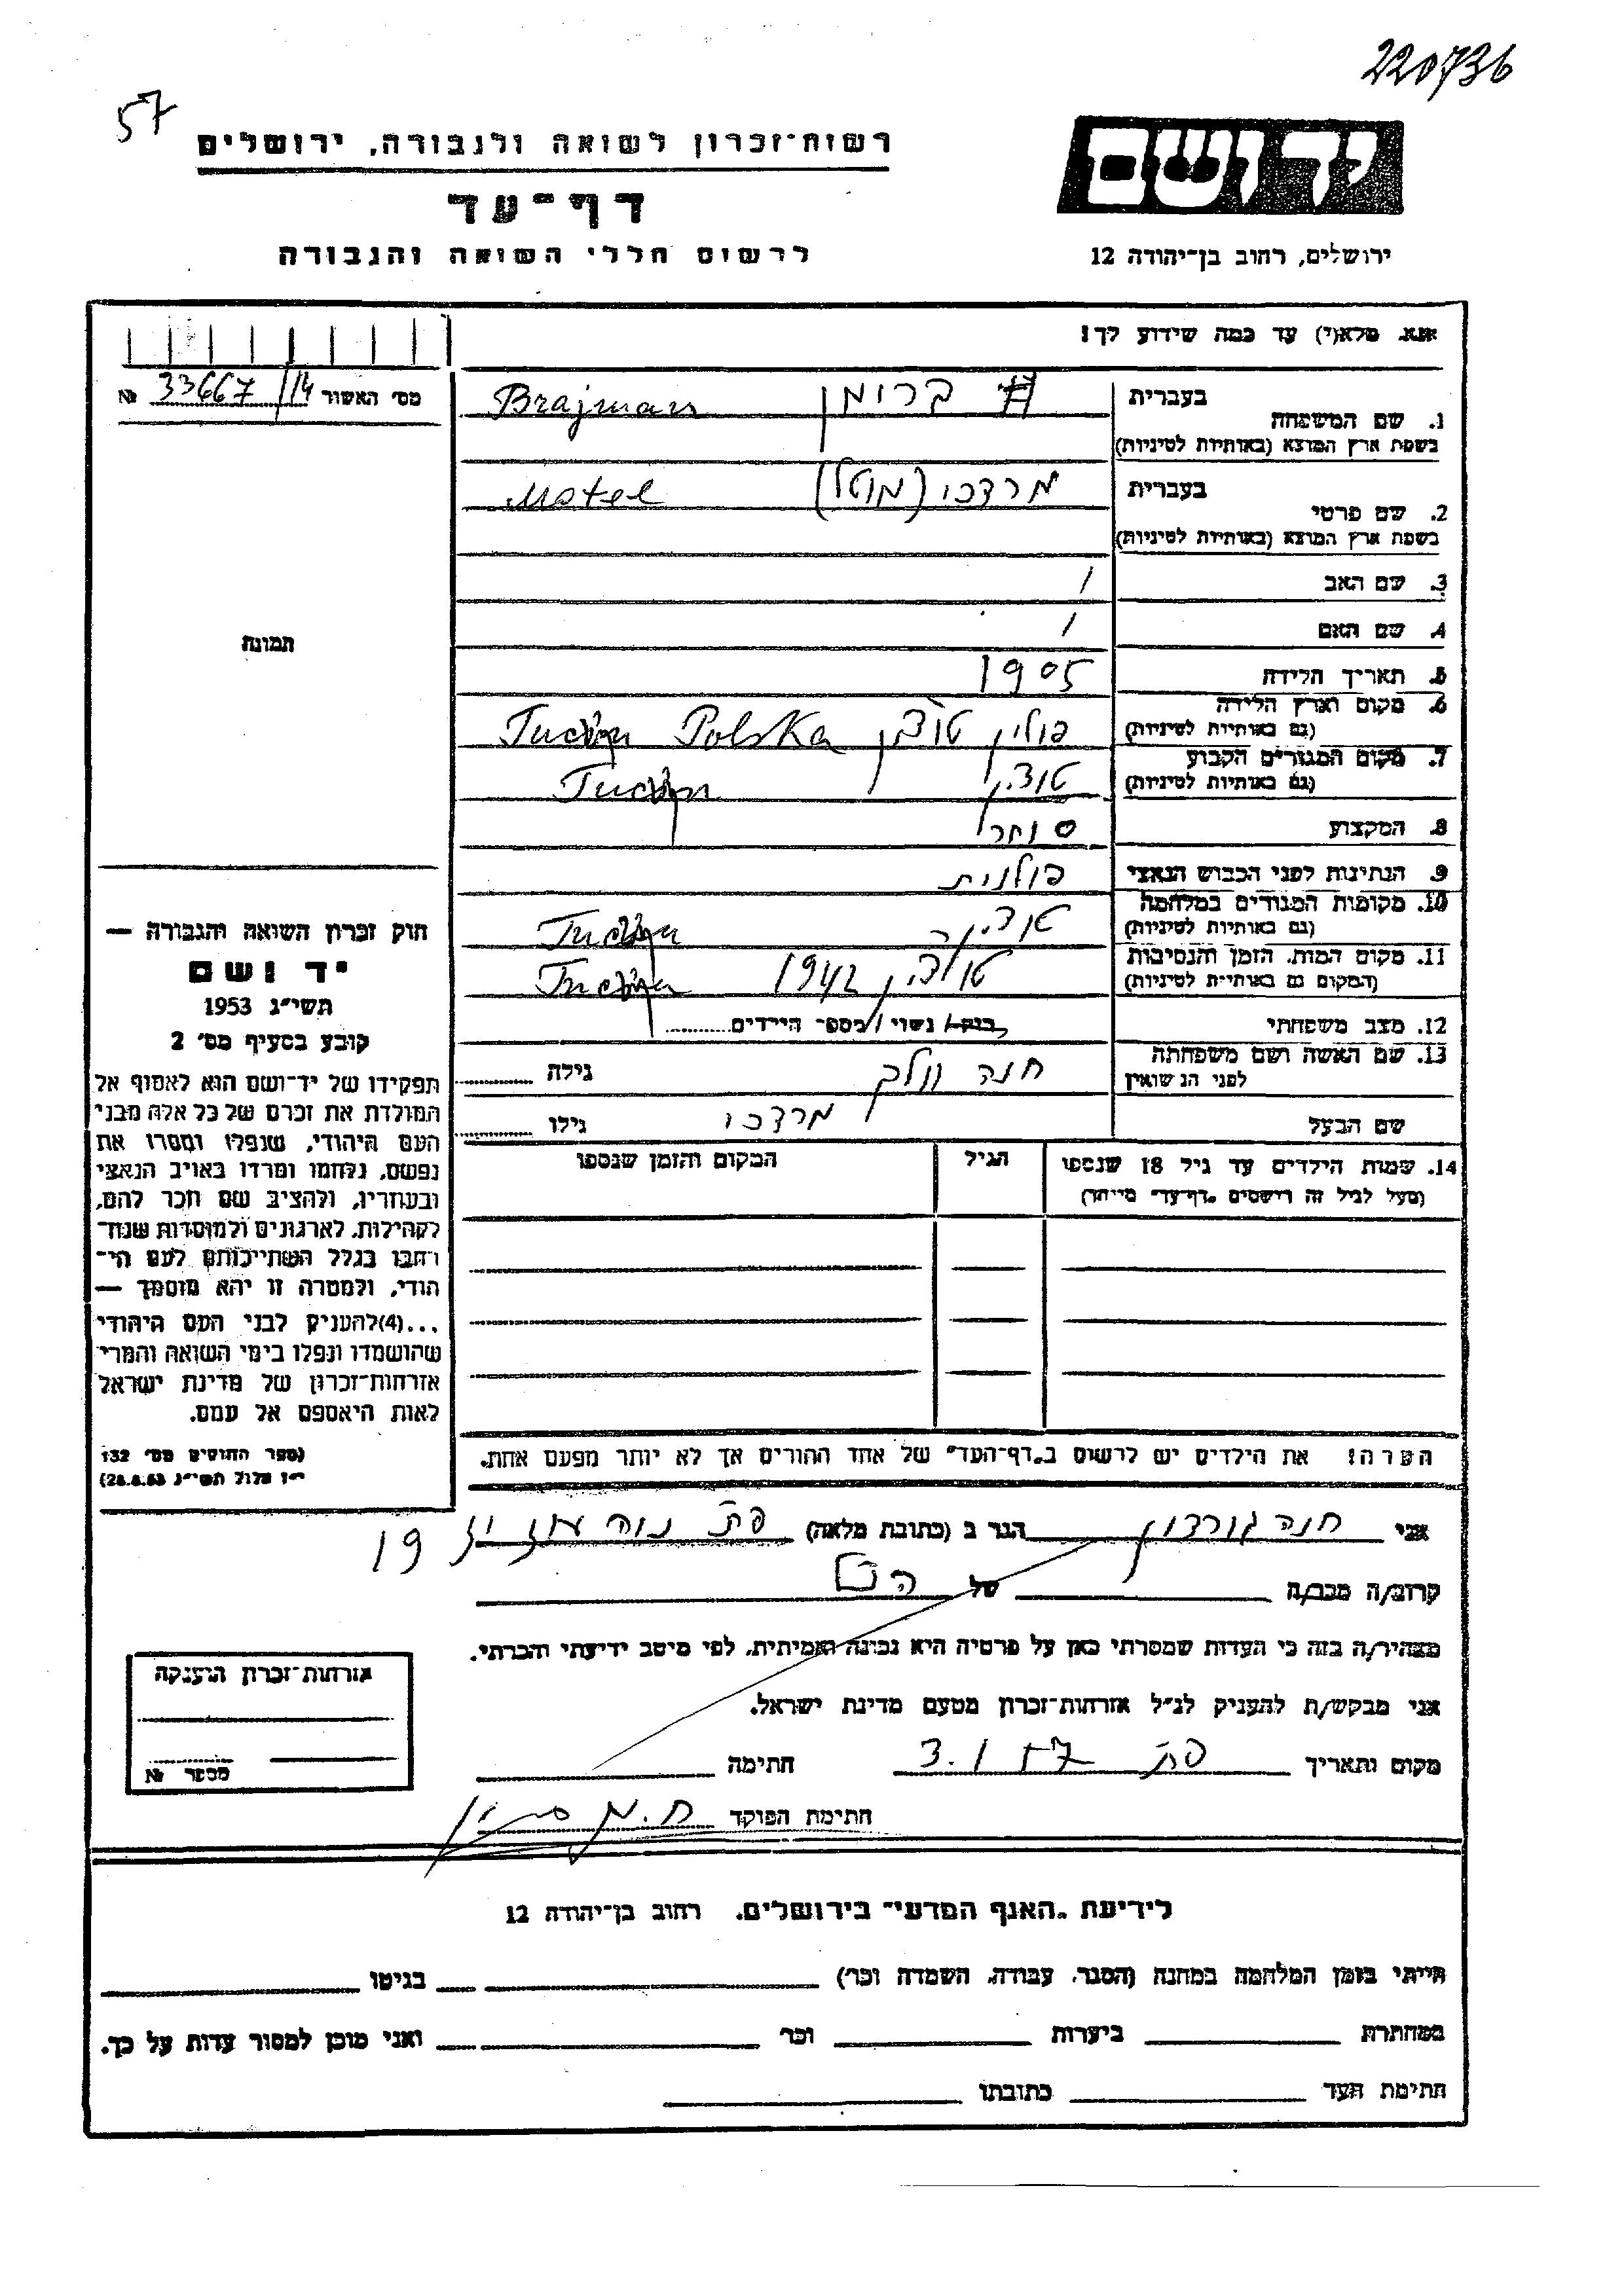 220736
57
רשות־זכרון לשואה ולגבורה, ירושלים
יד ושם
דף־עד
לרשום חללי השואה והגבורה
ירושלים, רחוב בן־יהודה 12
אנא, מלא(י) עד כמה שידוע לך!
מס׳ האשור 33667/14 №
בעברית
1. שם המשפחה
בשפת ארץ המוצא (באותיות לטיניות)
ברוימן Brajman
בעברית
2. שם פרטי
בשפת ארץ המוצא (באותיות לטיניות)
מרדכי (מוטל) Motel
3. שם האב /
4. שם האם /
תמונה
5. תאריך הלידה 1905
6. מקום וארץ הלידה
(גם באותיות לטיניות)
פולין טוצ'ין Tuczyn Polska
7. מקום המגורים הקבוע
(גם באותיות לטיניות)
טוצ'ין Tuczyn
8. המקצוע סוחר
9. הנתינות לפני הכבוש הנאצי פולנית
10. מקומות המגורים במלחמה
(גם באותיות לטיניות)
טוצ'ין Tuczyn
11. מקום המות, הזמן והנסיבות
(המקום גם באותיות לטיניות)
טוצ'ין 1942 Tuczyn
12. מצב משפחתי רווק/ נשוי /מספר הילדים
13. שם האשה ושם משפחתה
לפני הנישואין
חנה וולך גילה
שם הבעל מרדכי גילו
14. שמות הילדים עד גיל 18 שנספו
(מעל לגיל זה רושמים "דף־עד" מיוחד)
הגיל
המקום והזמן שנספו
חוק זכרון השואה והגבורה —
יד ושם
תשי״ג 1953
קובע בסעיף מס׳ 2
תפקידו של יד־ושם הוא לאסוף אל
המולדת את זכרם של כל אלה מבני
העם היהודי, שנפלו ומסרו את
נפשם, נלחמו ומרדו באויב הנאצי
ובעוזריו, ולהציב שם וזכר להם,
לקהילות, לארגונים ולמוסדות שנח־
רבו בגלל השתייכותם לעם הי־
הודי, ולמטרה זו יהא מוסמך —
...(4)להעניק לבני העם היהודי
שהושמדו ונפלו בימי השואה והמרי
אזרחות־זכרון של מדינת ישראל
לאות היאספם אל עמם.
(ספר החוקים מס׳ 132
י״ז אלול תשי״ג 28.8.53)
הערה: את הילדים יש לרשום ב"דף־העד" של אחד ההורים אך לא יותר מפעם אחת.
אני חנה גורדון הגר ב (כתובת מלאה) פת נוה 19
קרוב/ה מכר/ה של
מצהיר/ה בזה כי העדות שמסרתי כאן על פרטיה היא נכונה ואמיתית, לפי מיטב ידיעתי והכרתי.
אני מבקש/ת להעניק לנ״ל אזרחות־זכרון מטעם מדינת ישראל.
מקום ותאריך פת חתימה
חתימת הפוקד
אזרחות־זכרון הוענקה
מספר №
לידיעת "האגף המדעי" בירושלים, רחוב בן־יהודה 12
הייתי בזמן המלחמה במחנה (הסגר, עבודה, השמדה וכר׳) בגיטו
במחתרת ביערות וכר׳ ואני מוכן למסור עדות על כך.
חתימת העד כתובתו